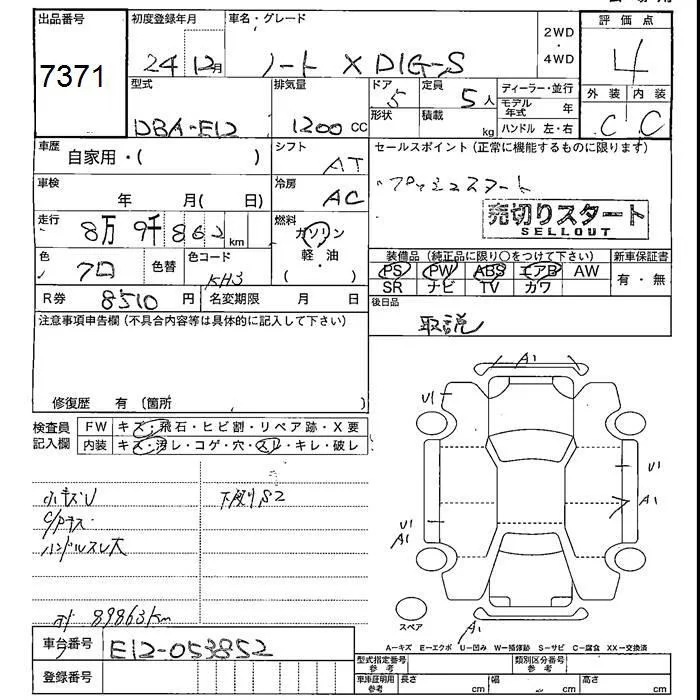 出品番号
7371
初度登録年月
24年12月
車名・グレード
ノート X DIG-S
2WD
・
4WD
評価点
4
外装 内装
C C
型式
DBA-E12
排気量
1200 CC
ドア
5
形状
定員
5人
積載
kg
ディーラー・並行
モデル年式 年
ハンドル 左・右
車歴
自家用・( )
シフト
AT
セールスポイント (正常に機能するものに限ります)
プッシュスタート
売切りスタート
SELLOUT
車検
年 月( 日)
冷房
AC
走行
8万9千862km
燃料
ガソリン
・
軽油
( )
色
クロ
色替
色コード
KH3
装備品 (純正品に限り○をつけて下さい)
PS PW ABS エアB AW
SR ナビ TV カワ
新車保証書
有・無
R券 8510円
名変期限 月 日
後日品
取説
注意事項申告欄 (不具合内容等は具体的に記入して下さい)
修復歴 有 (箇所 )
検査員
記入欄
FW キズ・飛石・ヒビ割・リペア跡・X要
内装 キズ・汚レ・コゲ・穴・スレ・キレ・破レ
小キズU
下廻りS2
ハンドルスレ大
89863km
A1
U1
U1
A1
U1
A1
A1
スペア
A-キズ E-エクボ U-凹み W-補修跡 S-サビ C-腐食 XX-交換済
車台番号 E12-053852
登録番号
型式指定番号
参考
類別区分番号
参考
車庫証明用
参考
長さ cm 幅 cm 高さ cm